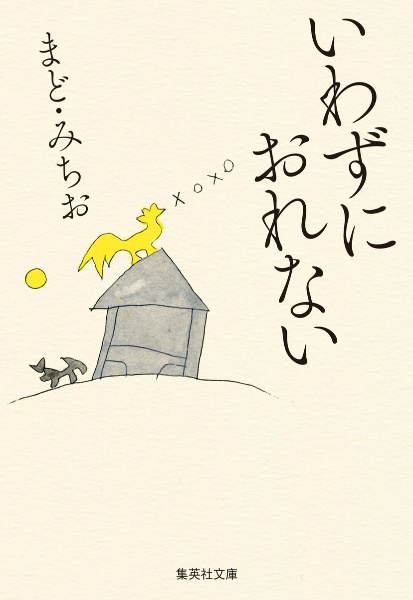 いわずに
おれない
まど・みちお
×○×○
集英社文庫